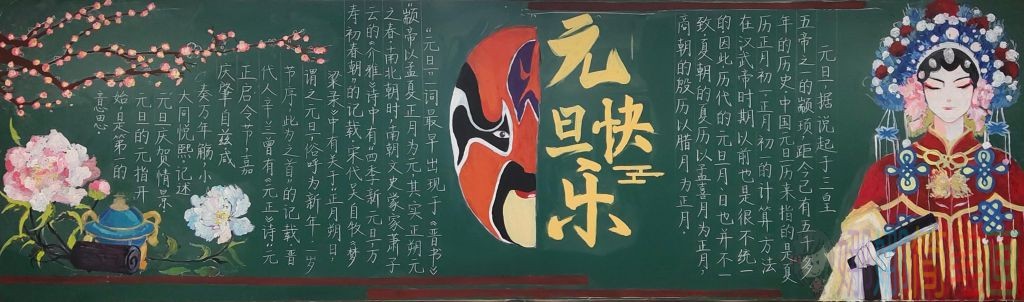 元旦快乐
元旦,据说起于三皇
五帝之一的颛顼,距今已有五千多
年的历史,中国元旦历来指的是夏
历正月初一正月初一的计算方法
在汉武帝时期以前也是很不统一
的因此历代的元旦月、日也并不一
致夏朝的夏历以孟喜月为正月,
商朝的殷历以腊月为正月。
“元旦”一词最早出现于《晋书》
“颛帝以孟夏正月为元其实正朔元
之春”南北朝时,南朝文史家萧子
云的《介雅》诗中有“四季新元旦万
寿初春朝”的记载,宋代吴自牧《梦
梁录》中有关于“正月朔日
谓之元旦俗呼为新年一岁
节序,此为之首的记载,晋
代人辛兰曾有《元正》诗“元
正启令节,嘉
庆肇自兹咸
奏万年觞,小
大同悦熙,记述
元旦庆贺情景
元旦的元指开
始是第一的
意思